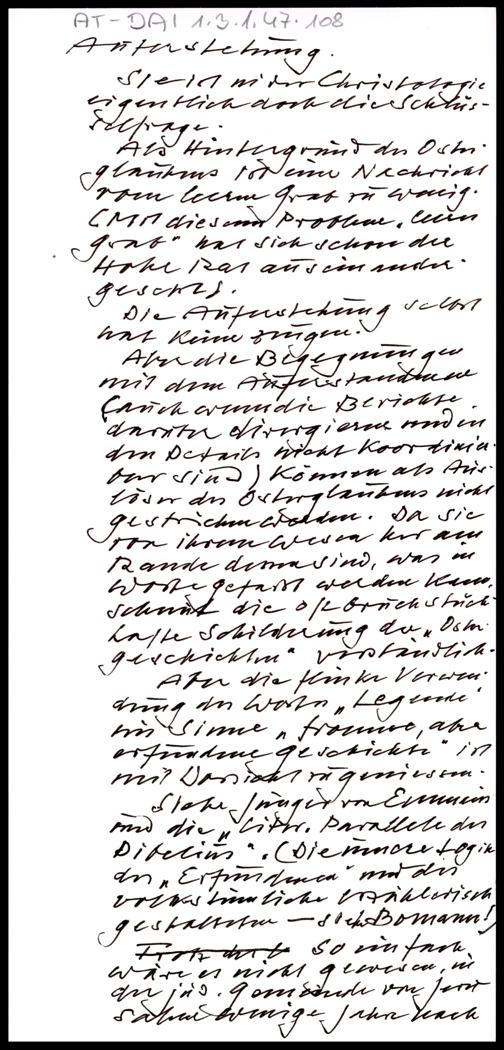 AT-DAI 1.3.1.47.108
Auferstehung.
Sie ist in der Christologie
eigentlich doch die Schlüs-
selfrage.
Als Hintergrund des Oster-
glaubens ist eine Nachricht
vom leeren Grab zu wenig.
(Mit diesem Problem „leeres
Grab" hat sich schon der
Hohe Rat auseinander-
gesetzt).
Die Auferstehung selbst
hat keine Zeugen.
Aber die Begegnungen
mit dem Auferstandenen
(auch wenn die Berichte
darüber divergieren und in
den Details nicht koordinier-
bar sind) können als Aus-
löser des Osterglaubens nicht
gestrichen werden. Da sie
von ihrem Wesen her am
Rande dessen sind, was in
Worte gefasst werden kann,
scheint die oft bruchstück-
hafte Schilderung der „Oster-
geschichten" verständlich.
Aber die flinke Verwen-
dung des Wortes „Legende"
im Sinne „fromme, aber
erfundene Geschichte" ist
mit Vorsicht zu geniessen.
Siehe Jünger von Emmaus
und die „liter. Parallele des
Dibelius". (Die innere Logik
des „Erfundenen" und des
volkstümliche erzählerisch
gestalteten — siehe Bomann!)
Trotz der So einfach
wäre es nicht gewesen, in
der jüd. Gemeinde von Jeru-
salem wenige Jahre nach